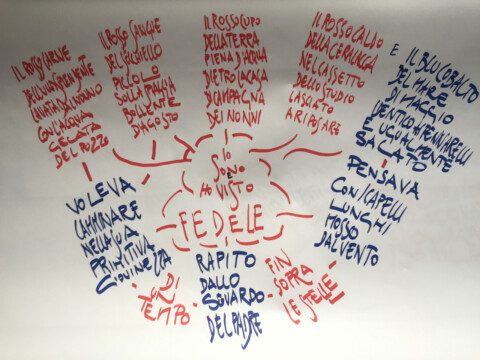 IL ROSSO CARNE
LAVATA DI
CON L'ACQUA
GELATA
DEL POZZO
IL ROSSO SANGUE
DEL SECCHIELLO
PICCOLO
SULLA SPIAGGIA
BOLLENTE
D'AGOSTO
IL ROSSO CUPO
DELLA TERRA
PIENA D'ACQUA
DIETRO LA CASA
DI CAMPAGNA
DEI NONNI
IL ROSSO CALDO
DELLA CERALACCA
NEL CASSETTO
DELLO STUDIO
LASCIATO
A RIPOSARE
E IL BLU COBALTO
DEL MARE
DI MAGGIO
E UGUALMENTE
SALATO
IO
SONO
E
HO VISTO
FEDELE
VOLEVA
CAMMINARE
NELLA SUA
PRIMITIVA
GIOVINEZZA
DI
UN
TEMPO
RAPITO
DALLO
SGUARDO
DEL PADRE
FIN
SOPRA
LE STELLE
PENSAVA
CON I CAPELLI
LUNGHI
MOSSO
DAL VENTO